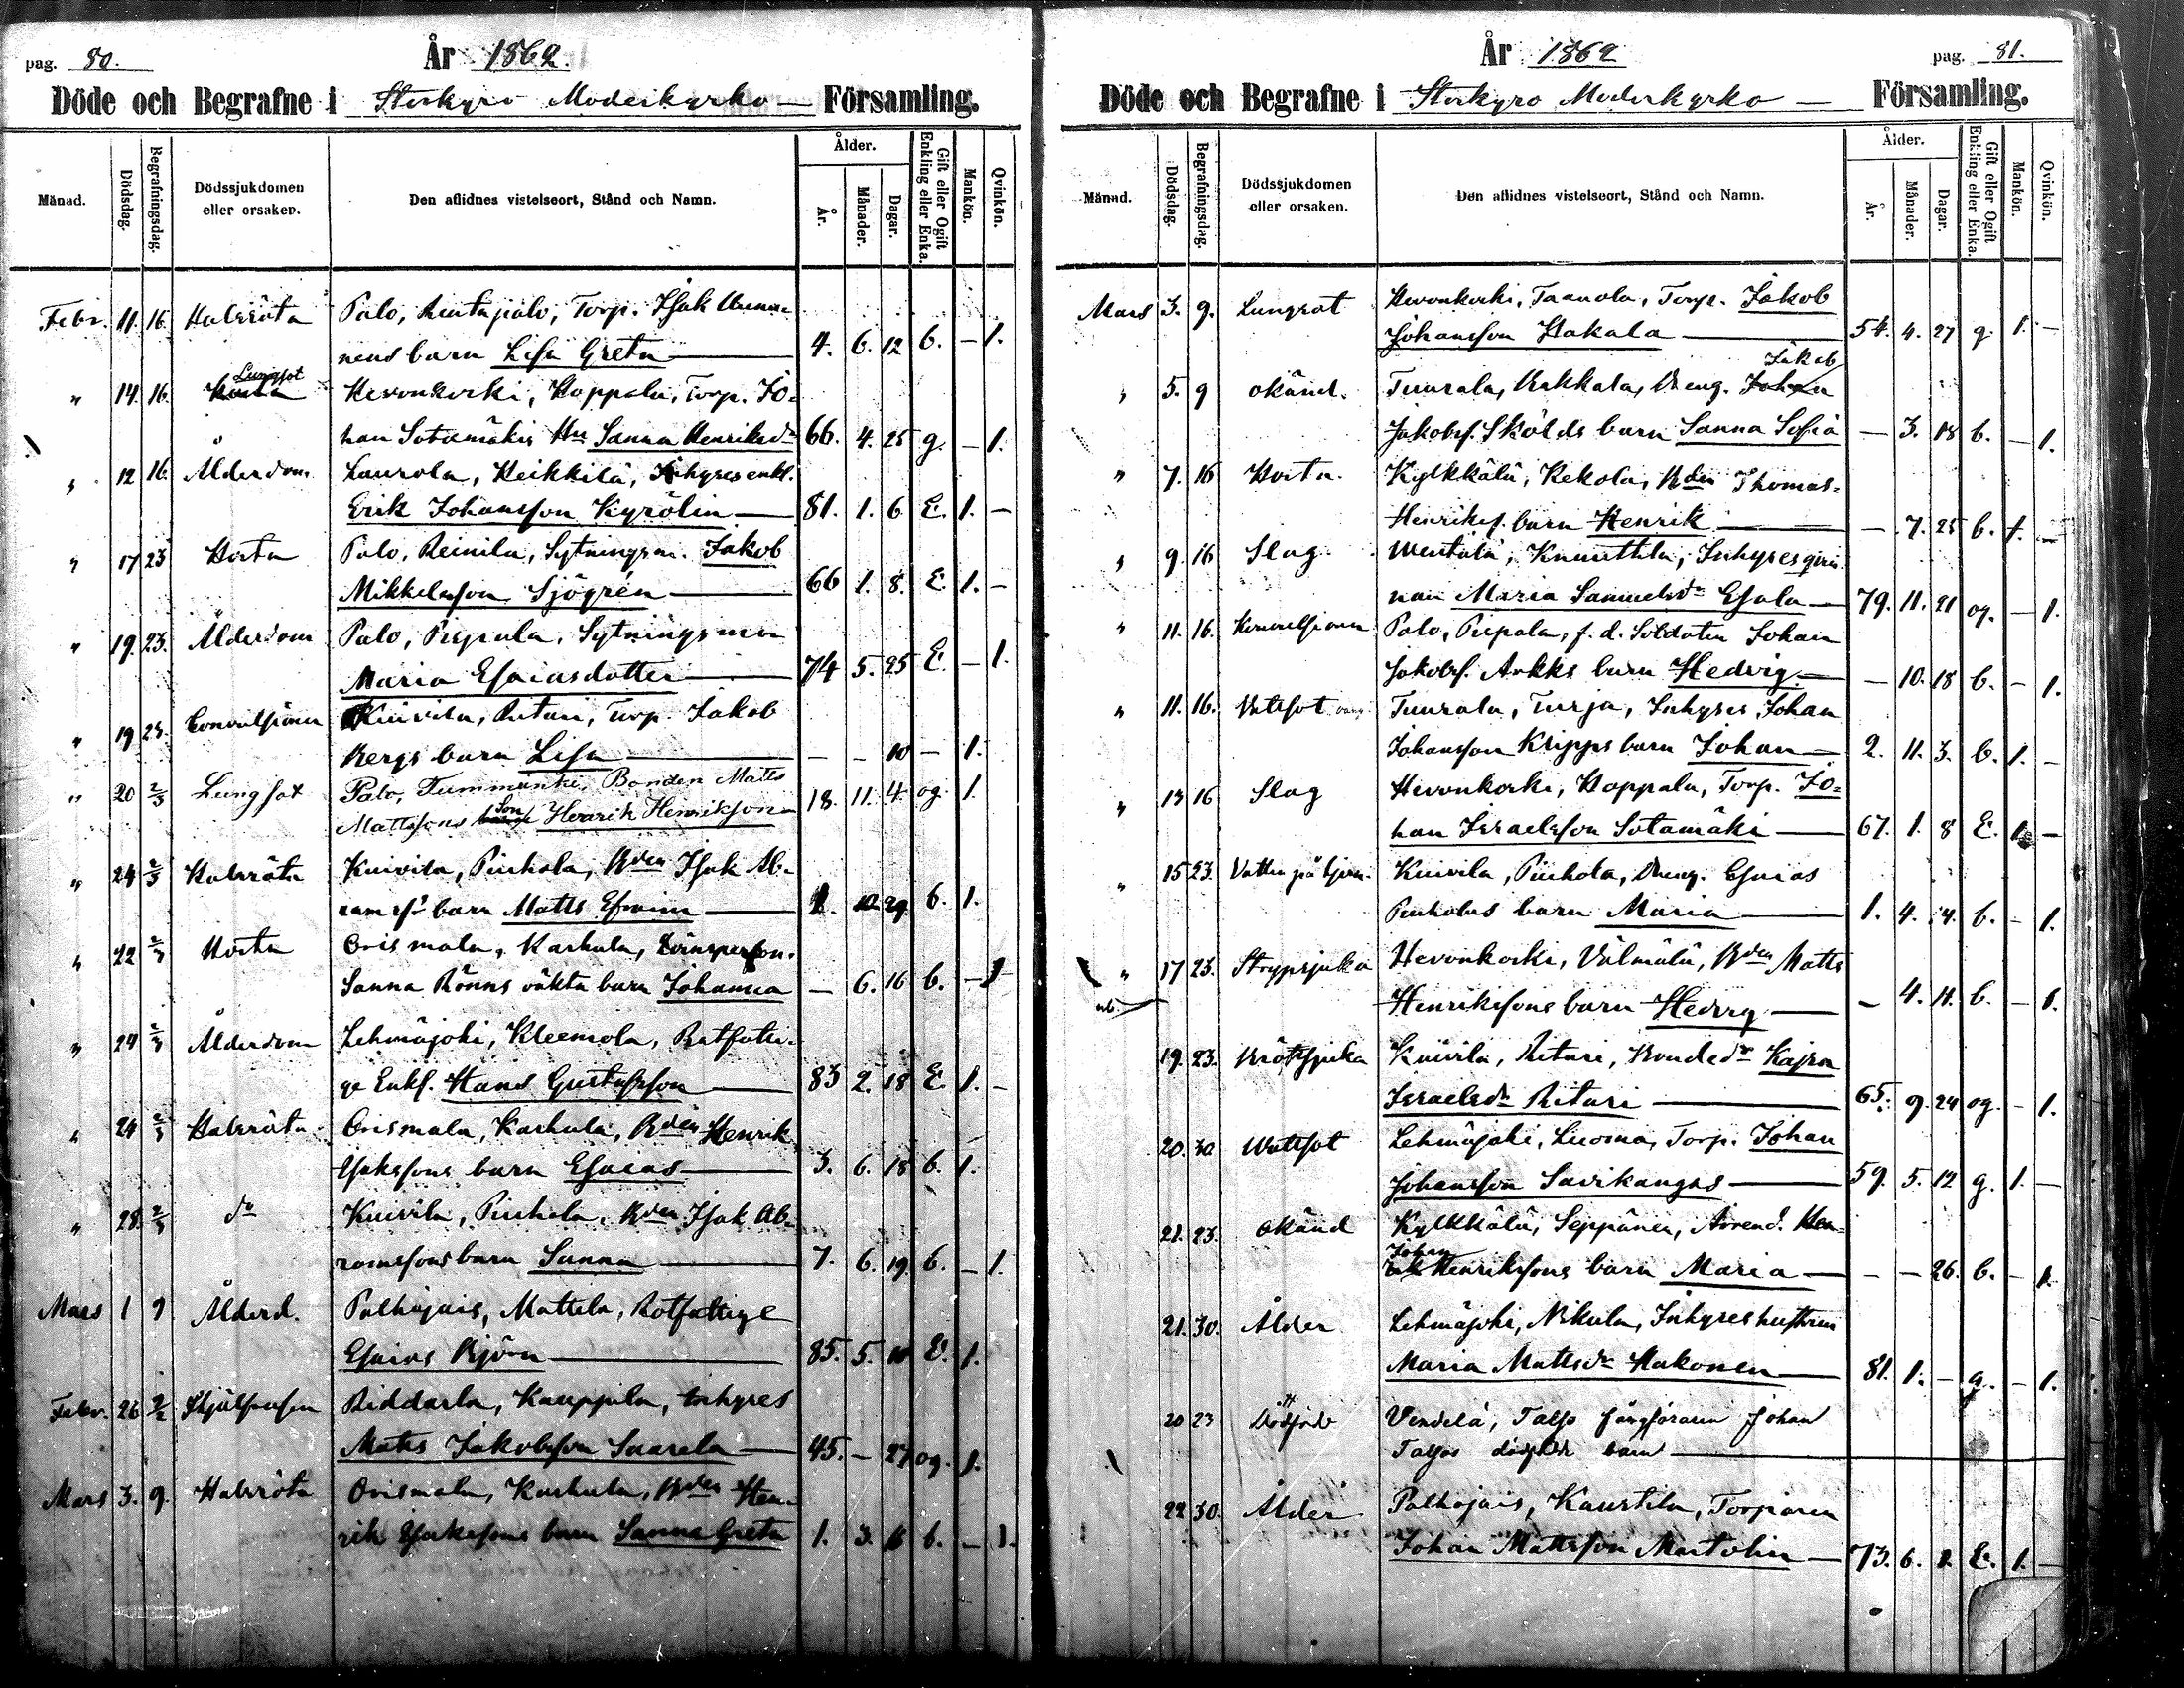 pag. 80.
År 1862.
Döde och Begrafne i Storkyro Moderkyrko — Församling.
Månad. Dödsdag. Begrafningsdag. Dödssjukdomen eller orsaken. Den aflidnes vistelseort, Stånd och Namn. Ålder. År. Månader. Dagar. Gift eller Ogift Enkling eller Enka. Mankön. Qvinkön.
Febr. 11. 16. Halsröta Palo, Rintapalo, Torp. Isak
nens barn Lisa Greta — 4. 6. 12 b. — 1.
" 14. 16. Lungsot Hevonkoski, Hoppala, Torp. Jo-
han Sotamäkis Hu Sanna Henriksdr 66. 4. 25 g. — 1.
" 12 16. Ålderdom Laurola, Heikkilä, Inhyses enkl.
Erik Johansson Kyrölin — 81. 1. 6 E. 1. —
" 17 23 Hosta Palo, Reinila, Sytningsm. Jakob
Mikkelsson Sjögrén — 66 1. 8. E. 1. —
" 19. 23. Ålderdom Palo, Pispala, Sytnings
Maria Esaiasdotter — 74 5. 25 E. — 1.
" 19 23. Convulsioner Kuivila, Ritari, Torp. Jakob
Bergs barn Lisa — — — 10 — 1.
" 20 2/3 Lungsot Palo, Tummunki, Bonden Matts
Mattssons Son Henrik Henrikson 18. 11. 4. og. 1.
" 24 2/3 Halsröta Kuivila, Piuhola, Bden Isak Ab-
ramss. barn Matts Efraim — 1. 10. 29. b. 1.
" 22 2/3 Hosta Orismala, Karhula, Löinsperson.
Sanna Rönns oäkta barn Johanna — 6. 16 b. — 1
" 24 2/3 Ålderdom Lehmäjoki, Kleemola, Rotfatti-
ge Enkl. Hans Gustafsson — 83 2. 18 E. 1. —
" 24 2/3 Halsröta Orismala, Karhula, Bden Henrik
Esakssons barn Esaias — 3. 6. 18 b. 1.
" 28. 2/3 do Kuivila, Piuhola, Bden Isak Ab-
ramssons barn Sanna — 7. 6. 19. b. — 1.
Mars 1 9 Ålderd. Palhojais, Mattila, Rotfattige
Esaias Björn — 85. 5. 10 E. 1.
Febr. 26 Riddarla, Kauppila, inhyses
Matts Jakobsson Saarela — 45. — 27 og. 1.
Mars 3. 9. Halsröta Orismala, Karhula, Bden Hen-
rik Esakssons barn Sanna Greta 1. 3. 16 b. — 1.
År 1862
pag. 81.
Döde och Begrafne i Storkyro Moderkyrko — Församling.
Månad. Dödsdag. Begrafningsdag. Dödssjukdomen eller orsaken. Den aflidnes vistelseort, Stånd och Namn. Ålder. År. Månader. Dagar. Gift eller Ogift Enkling eller Enka. Mankön. Qvinkön.
Mars 3. 9. Lungsot Hevonkoski, Taanola, Torp. Jakob
Johansson Hakala — 54. 4. 27 g. 1. —
Jakob
" 5. 9 okänd. Tuurala, Ukkala, Dreng. Johan
Jakobss. Skölds barn Sanna Sofia — 3. 18 b. — 1.
" 7. 16 Hosta. Kylkkälä, Kekola, Bden Thomas
Henrikss. barn Henrik — — 7. 25 b. 1. —
" 9. 16 Slag. Wentälä, Knuuttila, Inhysesqvin-
nan Maria Samuelsdr Esala — 79. 11. 21 og. — 1.
" 11. 16. Konvulsioner Palo, Pispala, f.d. Soldaten Johan
Jakobss. Arkks barn Hedvig — — 10. 18 b. — 1.
" 11. 16. Vattsot Tuurala, Turja, Inhyses Johan
Johansson Kripps barn Johan — 2. 11. 3. b. 1. —
" 13 16 Slag Hevonkoski, Hoppala, Torp. Jo-
han Israelsson Sotamäki — 67. 1. 8 E. 1. —
" 15 23. Vatten på hjern. Kuivila, Piuhola, Dreng. Esaias
Piuholas barn Maria — 1. 4. 14. b. — 1.
" 17 23. Strypsjuka Hevonkoski, Välmälä, Bden Matts
nb. Henrikssons barn Hedvig — — 4. 11. b. — 1.
19. 23. Bröstsjuka Kuivila, Ritari, Bondedr Kajsa
Israelsdr Ritari — 65. 9. 24 og. — 1.
20. 30 Wattsot Lehmäjoki, Luoma, Torp. Johan
Johansson Savikangas — 59. 5. 12 g. 1. —
21. 23. okänd Kylkkälä, Seppänen, Arrend. Hen-
Johan
rik Henrikssons barn Maria — — — 26. b. — 1.
21. 30. Ålder Lehmäjoki, Nikula, Inhyseshustrun
Maria Mattsdr Hakonen — 81. 1. — g. — 1.
20 23 Dödfödt Vendelä, Talso fångföraren Johan
Talsos dödfödt barn —
22 30. Ålder Palhojais, Kaurtila, Torparen
Johan Mattsson Martolin — 73. 6. 1. E. 1. —